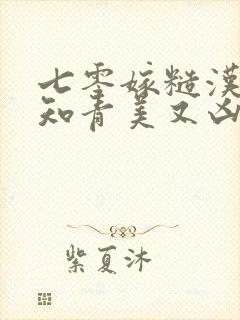 七零嫁糙漢
知青美又凶
紫夏沐